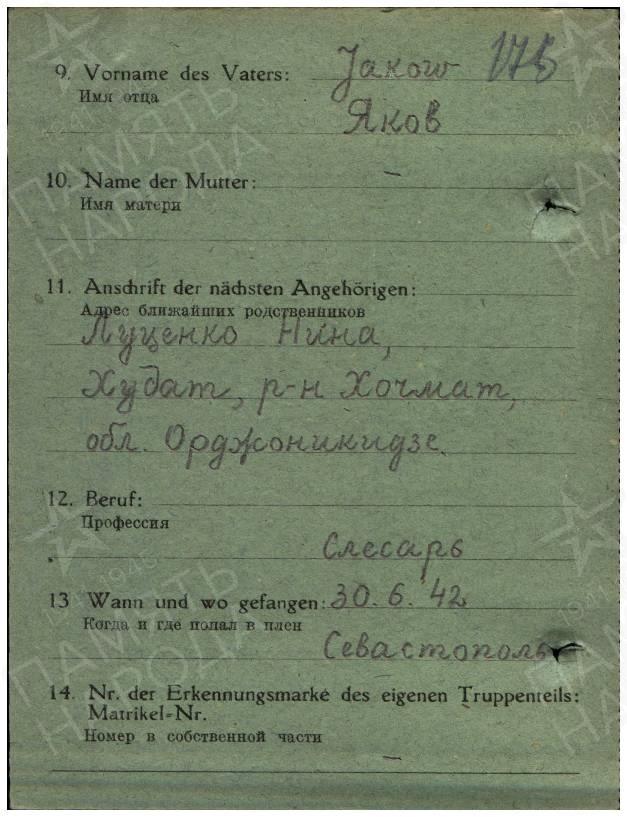 9. Vorname des Vaters: Jakow 175
Имя отца
Яков
10. Name der Mutter: —
Имя матери
11. Anschrift der nächsten Angehörigen:
Адрес ближайших родственников
Луценко Нина,
Худат, р-н Хочмат,
обл. Орджоникидзе.
12. Beruf:
Профессия
Слесарь
13 Wann und wo gefangen: 30. 6. 42
Когда и где попал в плен
Севастополь
14. Nr. der Erkennungsmarke des eigenen Truppenteils:
Matrikel-Nr.
Номер в собственной части
—
ПАМЯТЬ
НАРОДА
1941-1945